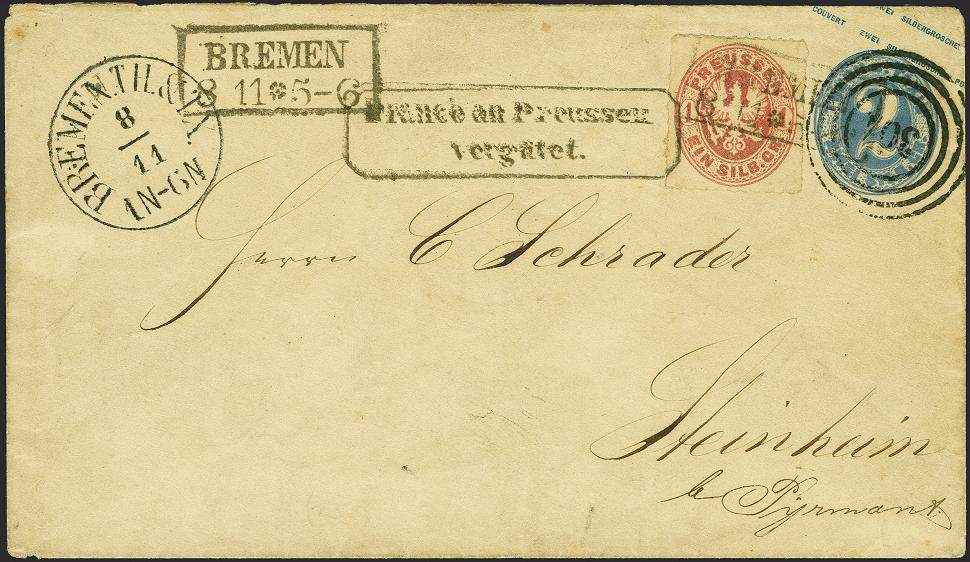 COUVERT ZWEI SILBERGROSCHE
ZWEI
BREMEN
8 11 * 5-6
BREMEN TH.&TX.
8
11
1N-6N
Franco an Preussen
vergütet.
PREUSSEN
EIN SILB.GR
2
Herrn C Schrader
Steinheim
b Pyrmont